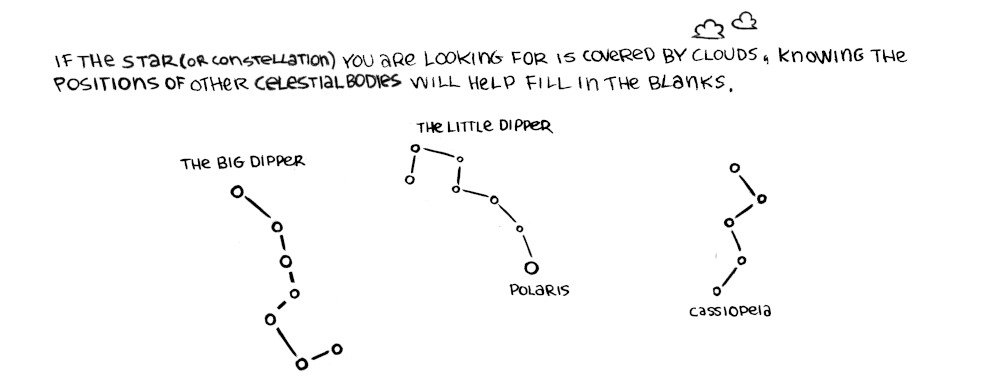 IF THE STAR (OR CONSTELLATION) YOU ARE LOOKING FOR IS COVERED BY CLOUDS, KNOWING THE
POSITIONS OF OTHER CELESTIAL BODIES WILL HELP FILL IN THE BLANKS.
THE LITTLE DIPPER
THE BIG DIPPER
POLARIS
CASSIOPEIA